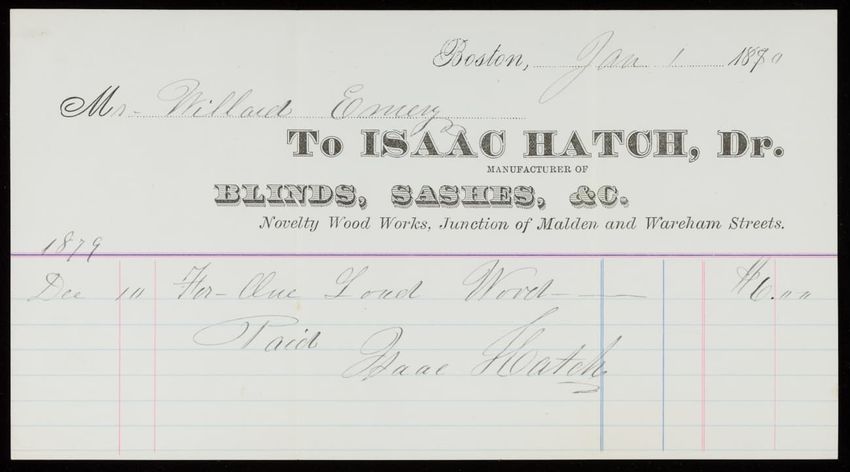 Boston, Jan 1 1870
Mr. Willard Emery
To ISAAC HATCH, Dr.
MANUFACTURER OF
BLINDS, SASHES, &C.
Novelty Wood Works, Junction of Malden and Wareham Streets.
1879
Dec 10 For One Load Wood $6.00
Paid
Isaac Hatch